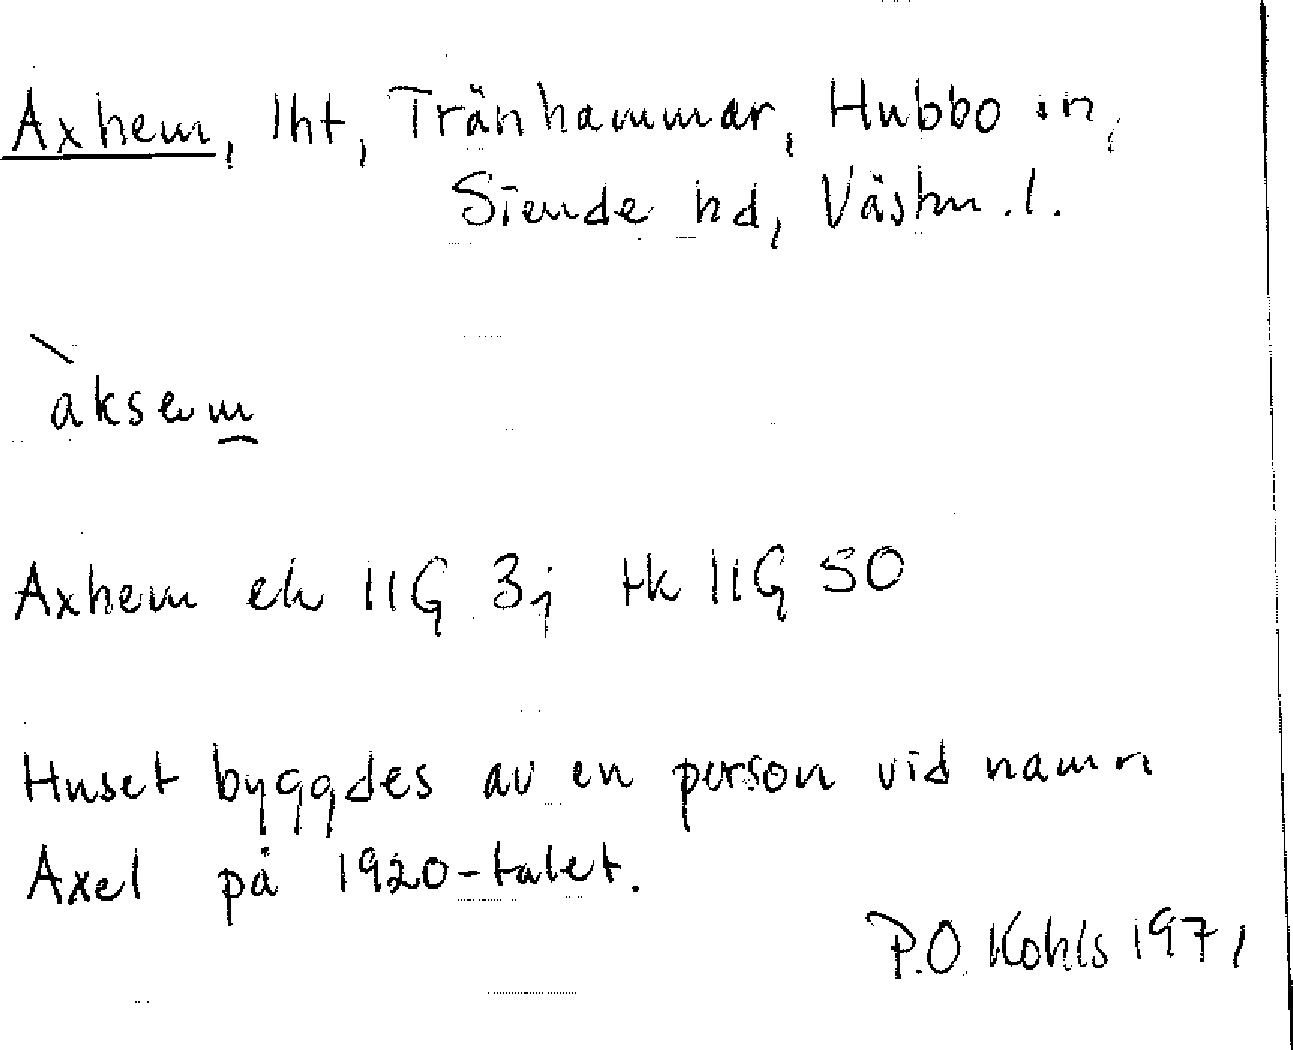 Axhem, lht, Tränhammar, Hubbo sn,
Siende hd, Västm. l.
`aksem
Axhem ek 11G 3j tk 11G SO
Huset byggdes av en person vid namn
Axel på 1920-talet.
P.O. Kohls 1971